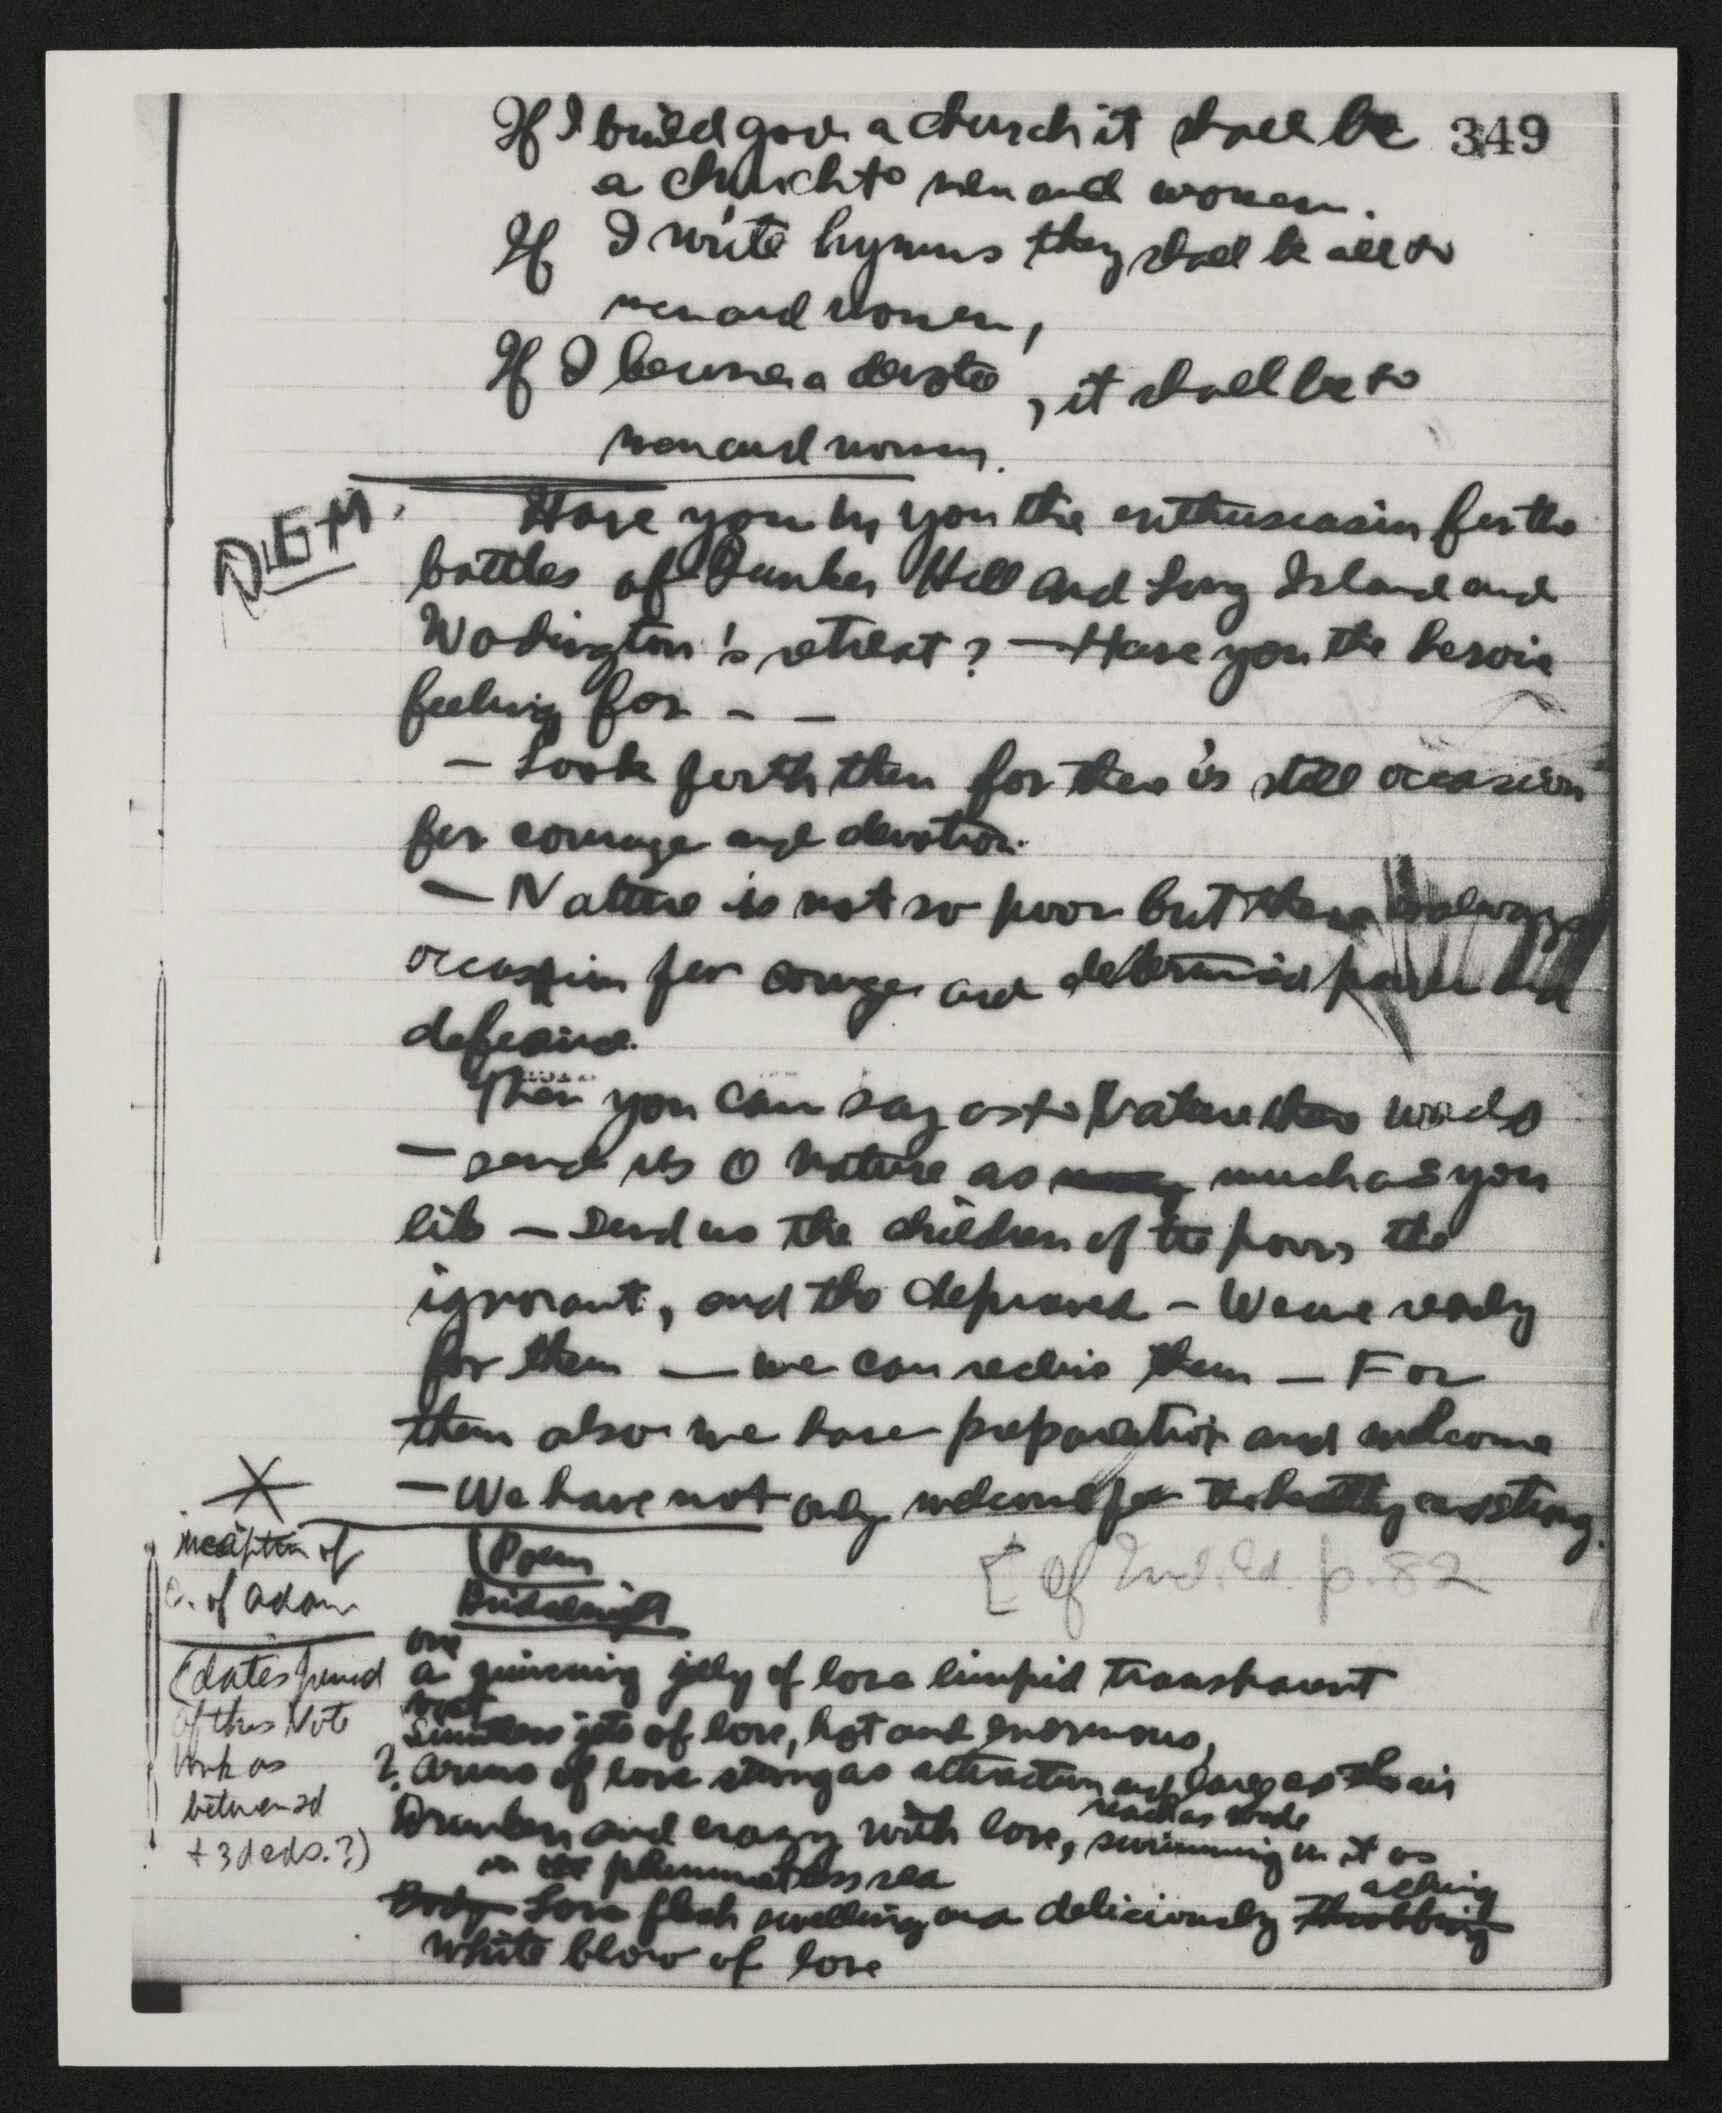 349
If I build god a church it shall be
a church to men and women.
If I write hymns they shall be all to
men and women,
If I become a devotee, it shall be to
men and women.
Have you in you the enthusiasm for the
battles of Bunker Hill and Long Island and
Washington's retreat? — Have you the heroic
feeling for - -
— Look forth then for there is still occasion
for courage and devotion.
— Nature is not so poor but there is always
occasion for courage and determined power and
defiance.
Then you can say as to Nature these words
— send us O Nature as many much as you
like — Send us the children of the poor, the
ignorant, and the depraved — We are ready
for them — we can receive them — For
them also we have preparation and welcome
— We have not only welcome for the healthy and strong.
inception of
C. of Adam
(dates period
of this Note
book as
between 2d
+ 3d eds.?)
[cf Ind. Ed. p. 82
Poem
Bridalnight
one
a quivering jelly of love limpid transparent
vast
Limitless jets of love, hot and enormous,
? Arms of love strong as attraction and large as the air
reach as wide
Drunken and crazy with love, swimming in it as
in the plummetless sea
aching
Body Love flesh swelling and deliciously throbbing
white blow of love